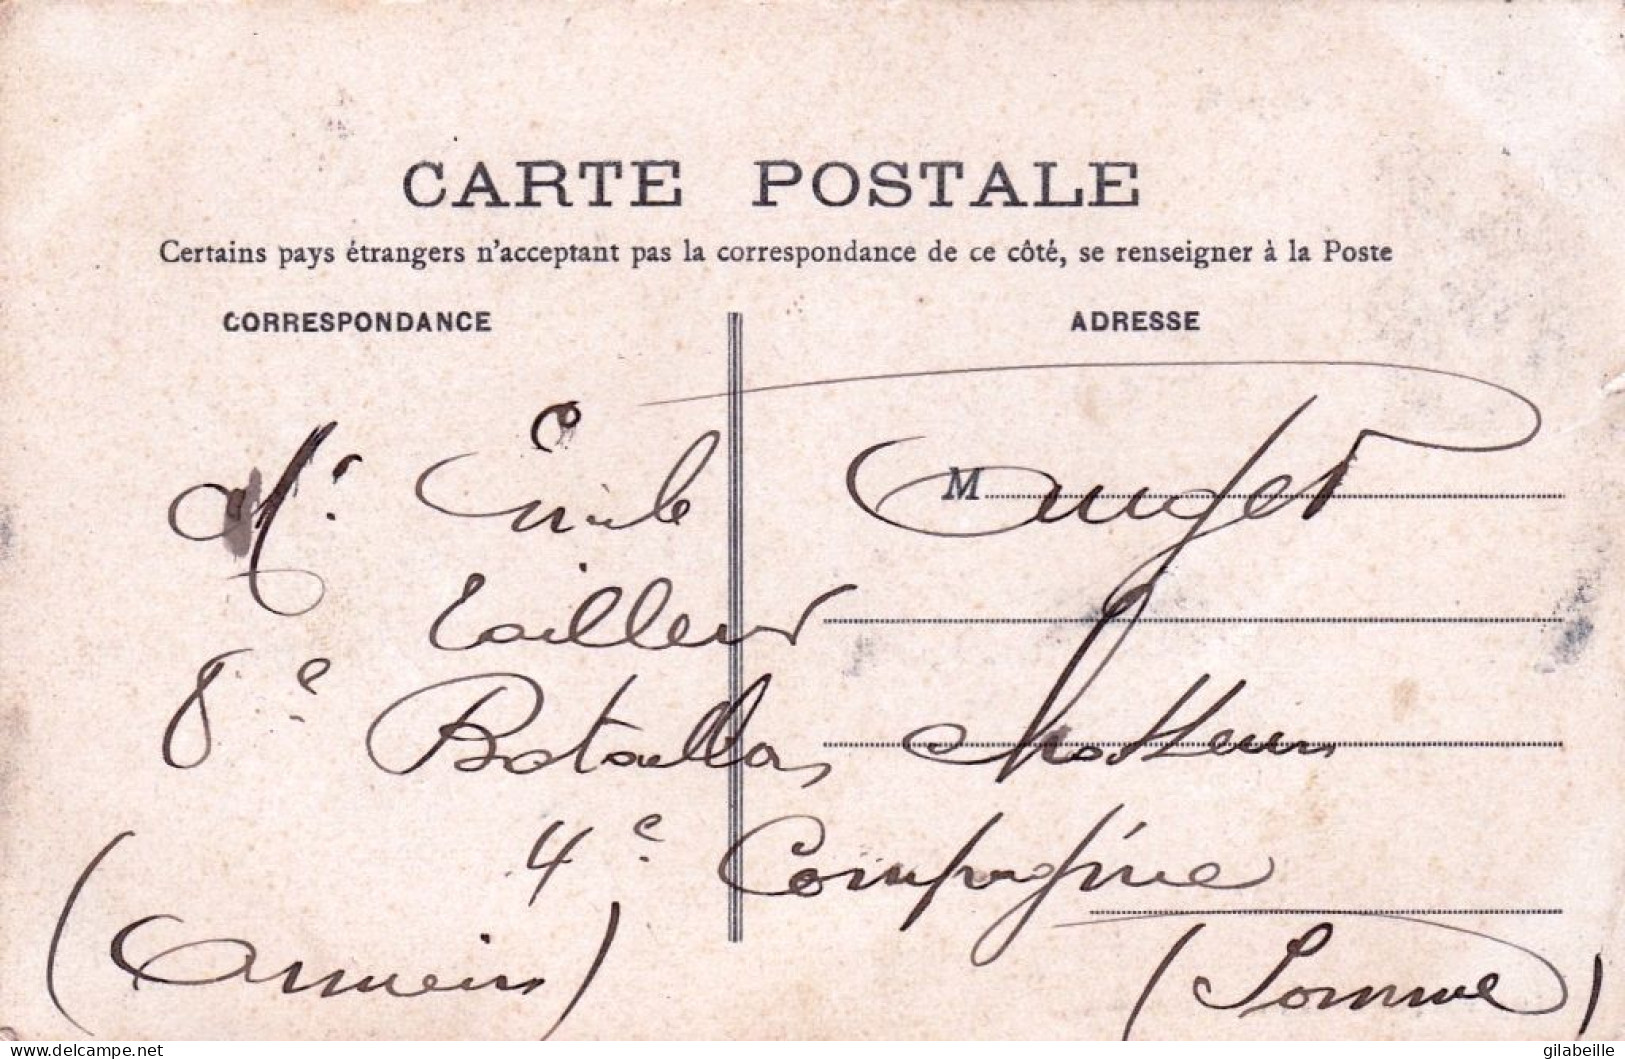 CARTE POSTALE
Certains pays étrangers n'acceptant pas la correspondance de ce côté, se renseigner à la Poste
CORRESPONDANCE
ADRESSE
Mr. Emile M Auger
Tailleur
8e Bataillon Chasseurs
4e Compagnie
(Amiens) (Somme)
www.delcampe.net
gilabeille